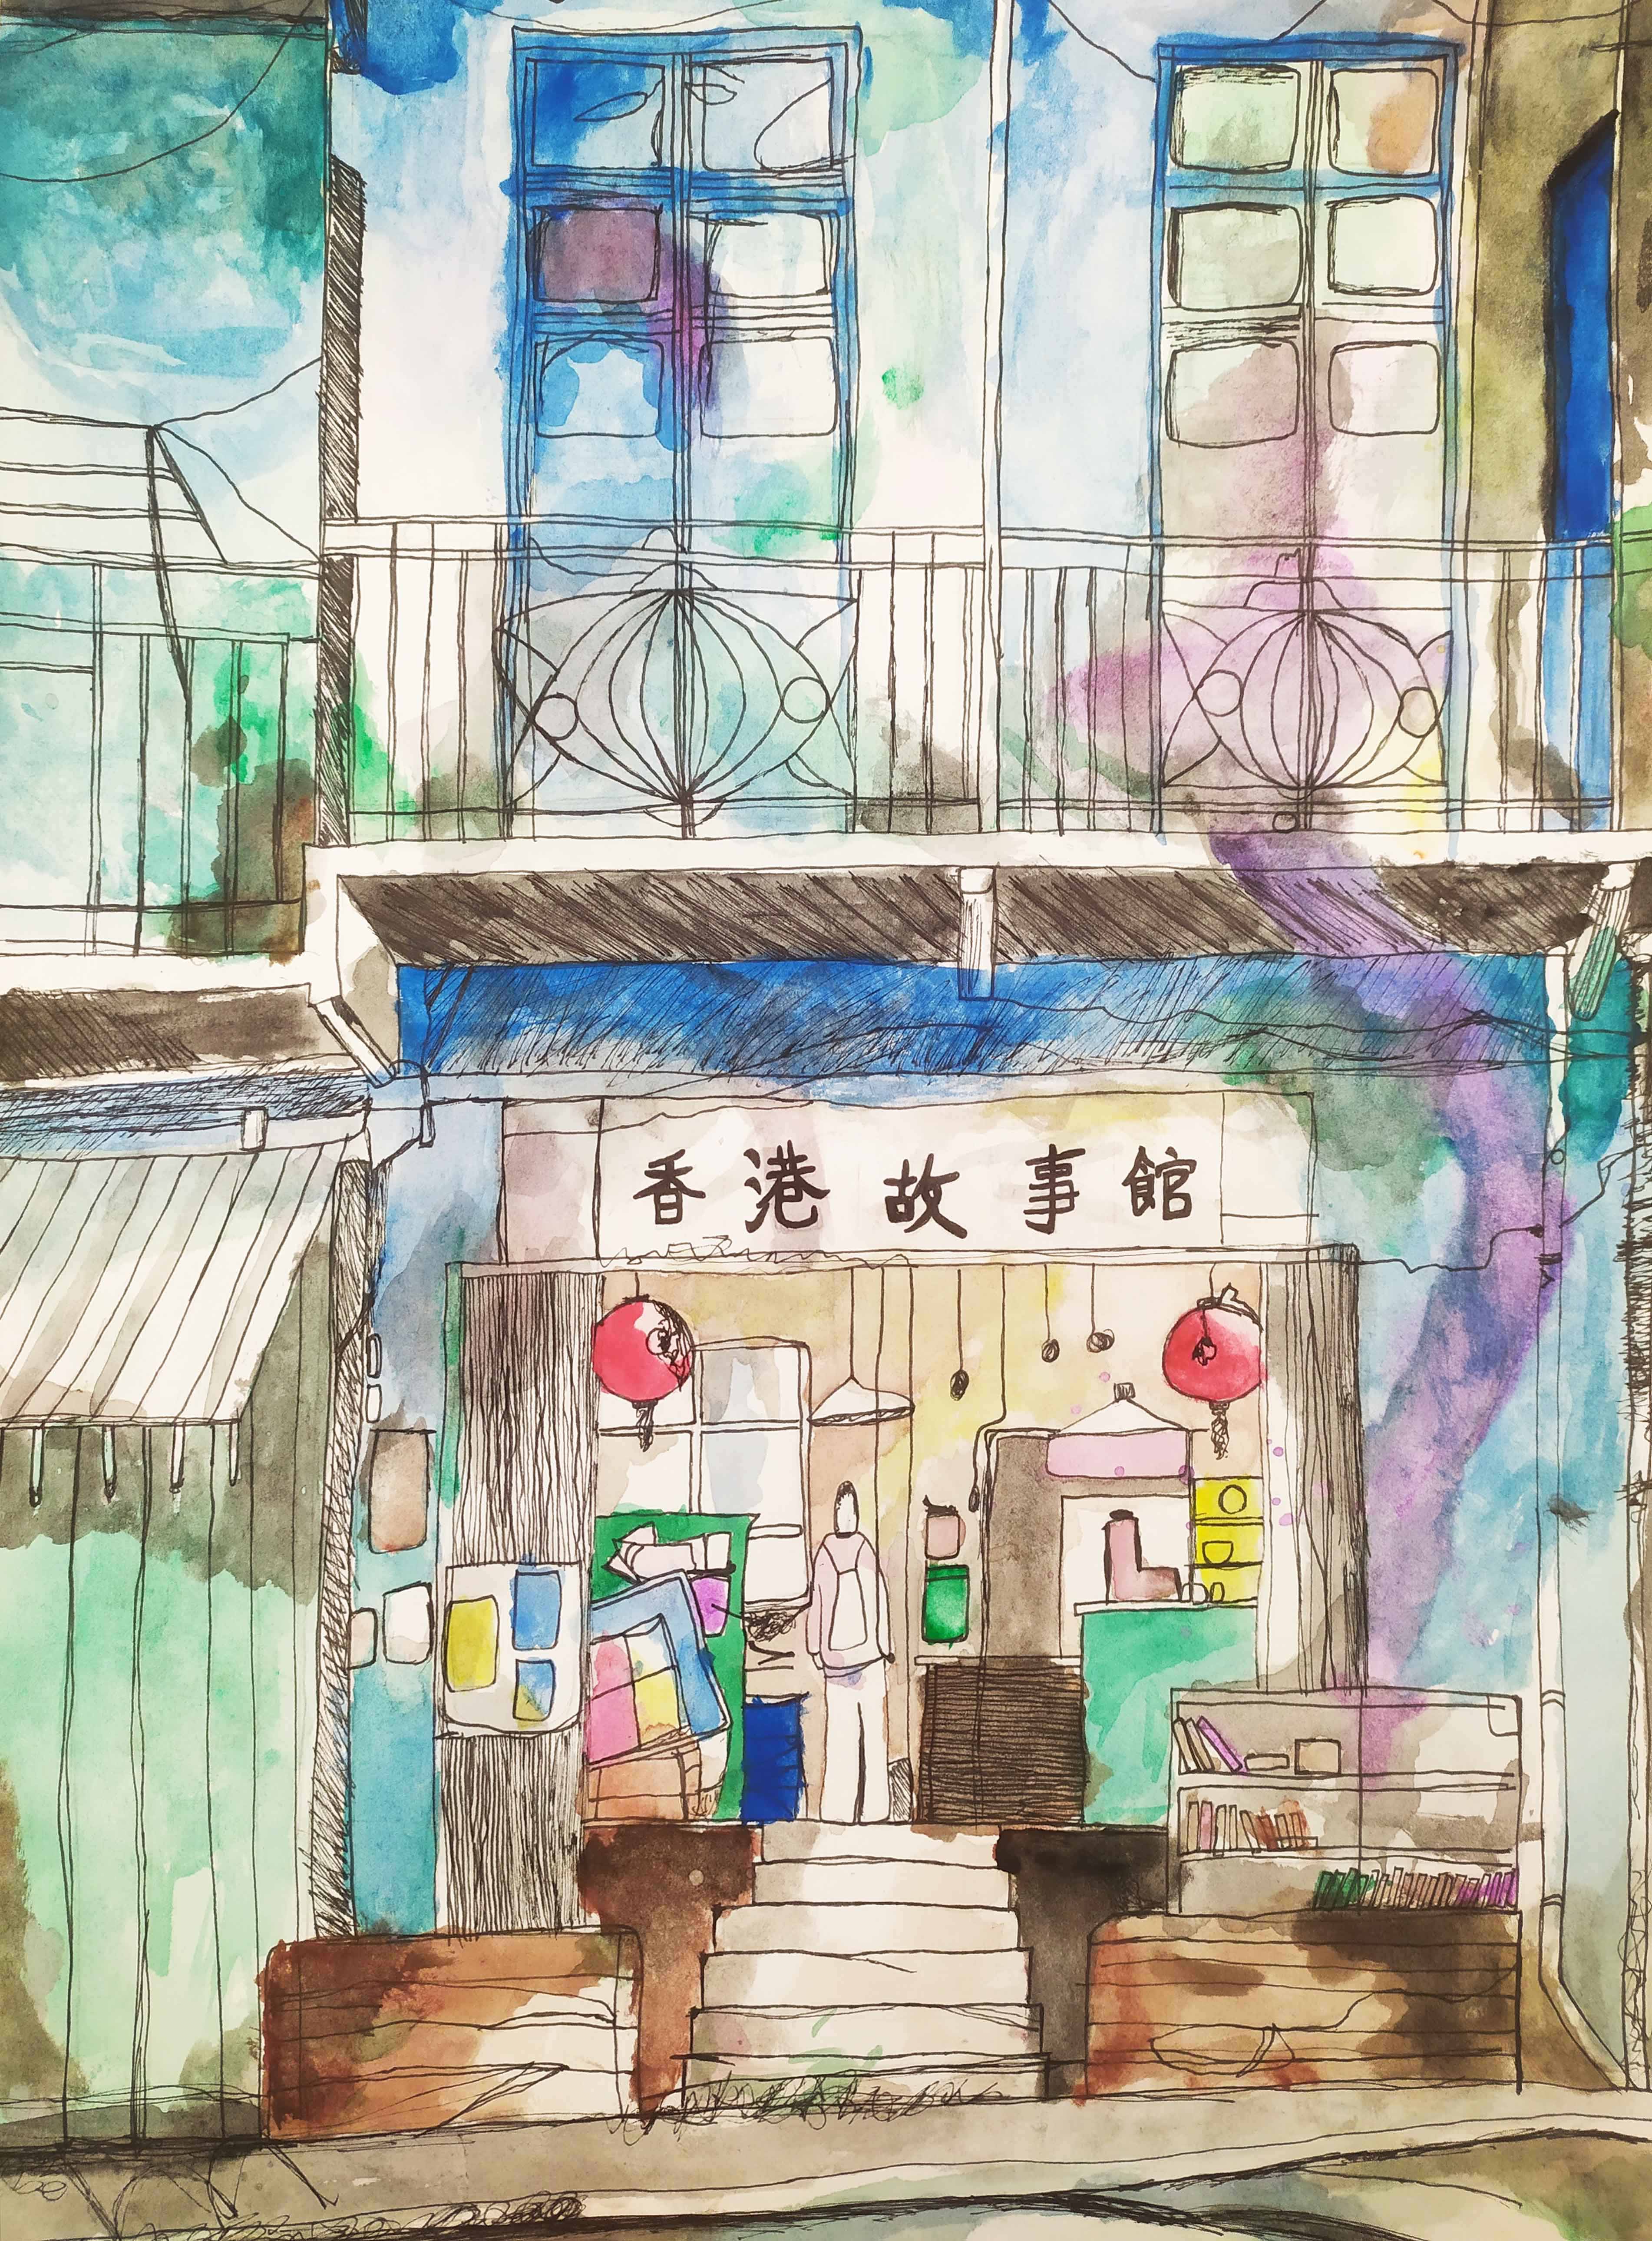 香港故事館